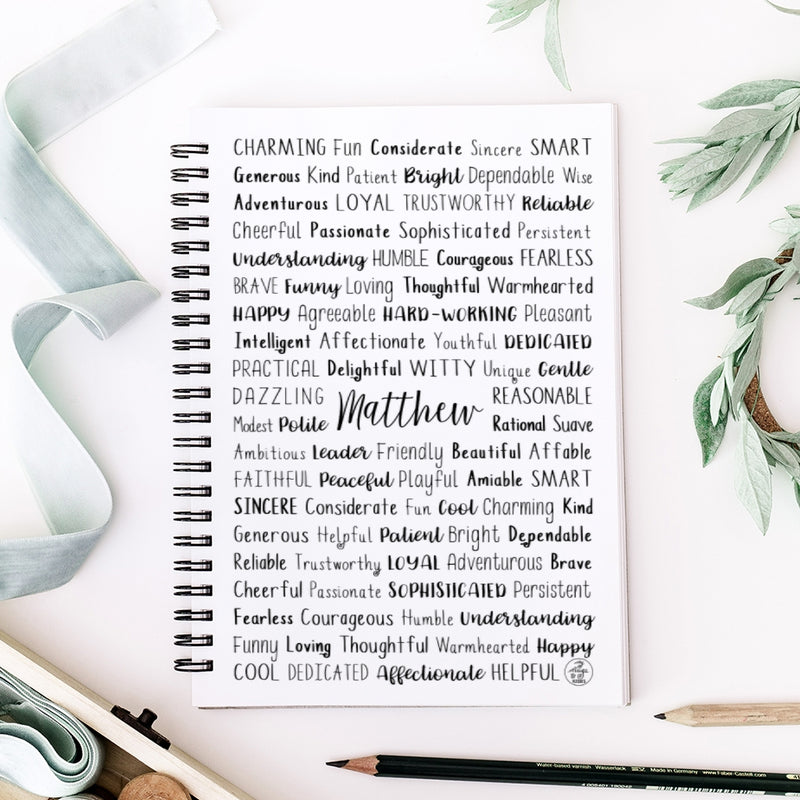 CHARMING Fun Considerate Sincere SMART
Generous Kind Patient Bright Dependable Wise
Adventurous LOYAL TRUSTWORTHY Reliable
Cheerful Passionate Sophisticated Persistent
Understanding HUMBLE Courageous FEARLESS
BRAVE Funny Loving Thoughtful Warmhearted
HAPPY Agreeable HARD-WORKING Pleasant
Intelligent Affectionate Youthful DEDICATED
PRACTICAL Delightful WITTY Unique Gentle
DAZZLING Matthew REASONABLE
Modest Polite Rational Suave
Ambitious Leader Friendly Beautiful Affable
FAITHFUL Peaceful Playful Amiable SMART
SINCERE Considerate Fun Cool Charming Kind
Generous Helpful Patient Bright Dependable
Reliable Trustworthy LOYAL Adventurous Brave
Cheerful Passionate SOPHISTICATED Persistent
Fearless Courageous Humble Understanding
Funny Loving Thoughtful Warmhearted Happy
COOL DEDICATED Affectionate HELPFUL
Water-based varnish Wasserlack Made in Germany www.Faber-Castell.com